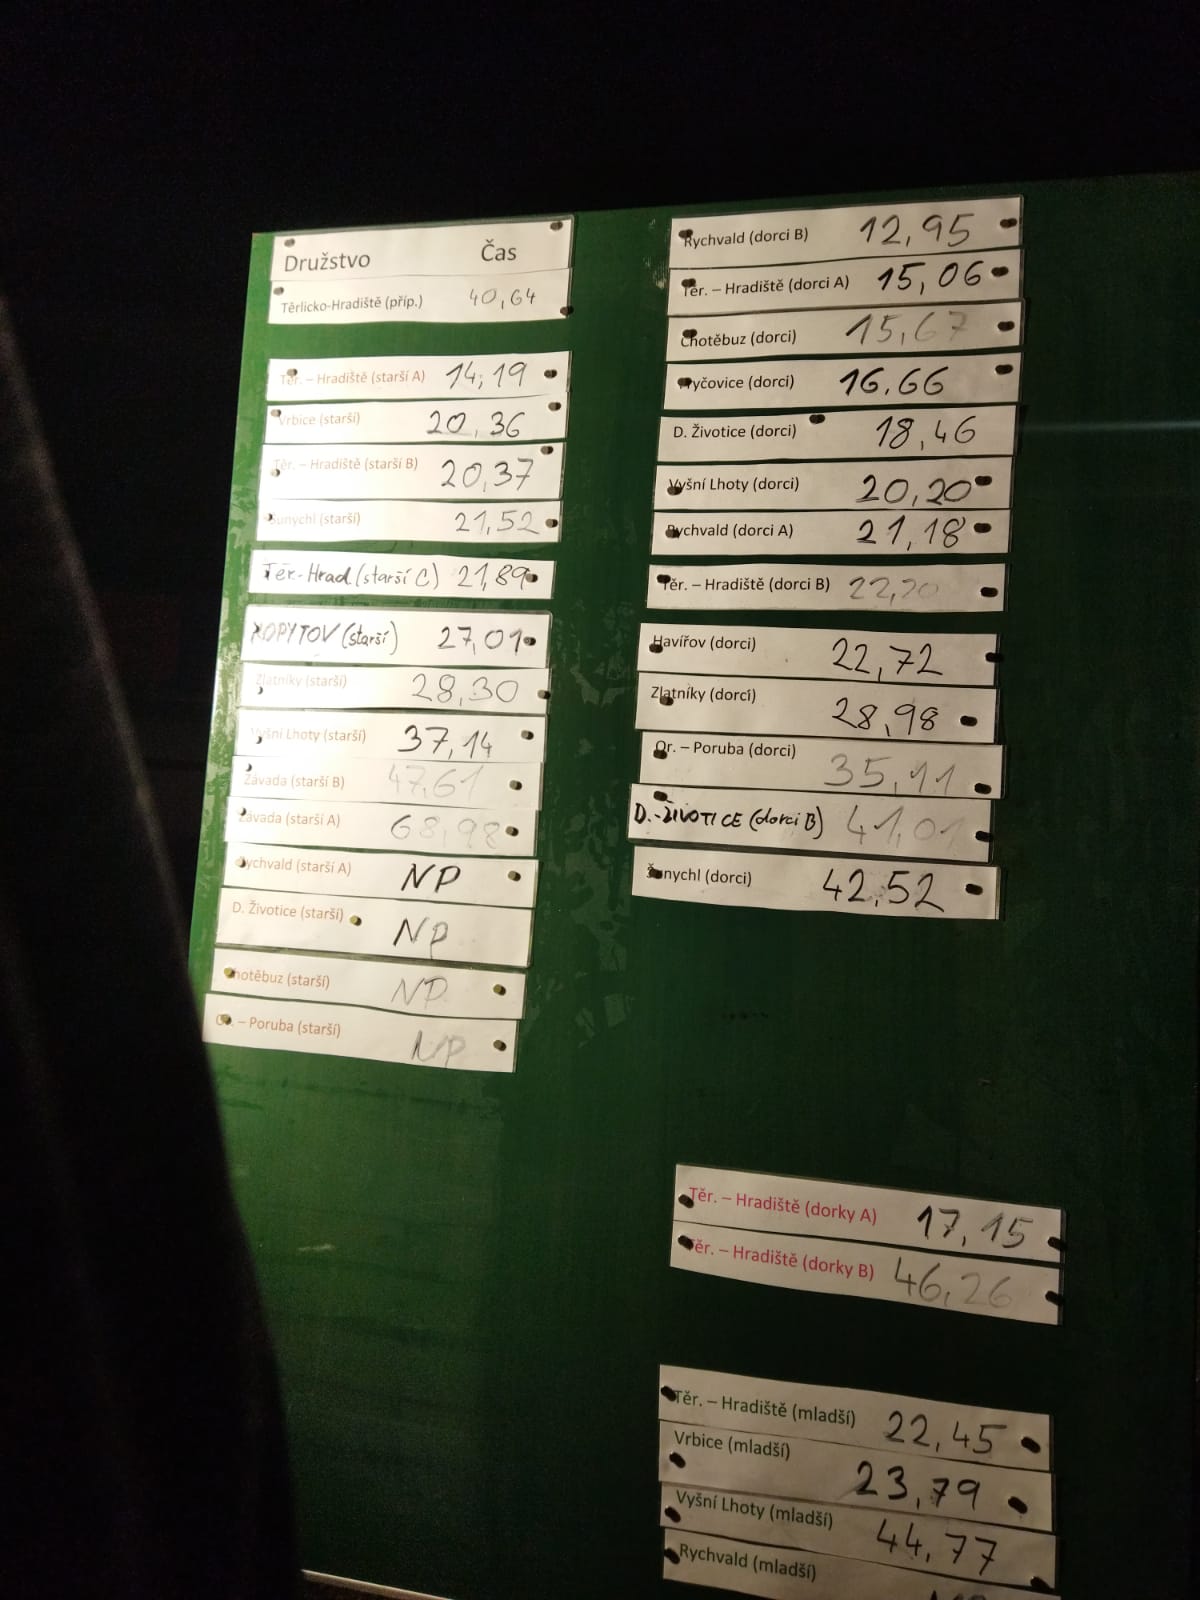 Družstvo Čas
Těrlicko-Hradiště (příp.) 40,64
Těr. – Hradiště (starší A) 14,19
Vrbice (starší) 20,36
Těr. – Hradiště (starší B) 20,37
Šunychl (starší) 21,52
Těr.-Hrad. (starší C) 21,89
KOPYTOV (starší) 27,01
Zlatníky (starší) 28,30
Vyšní Lhoty (starší) 37,14
Závada (starší B) 47,61
Závada (starší A) 68,98
Rychvald (starší A) NP
D. Životice (starší) NP
Chotěbuz (starší) NP
Or. – Poruba (starší) NP
Rychvald (dorci B) 12,95
Těr. – Hradiště (dorci A) 15,06
Chotěbuz (dorci) 15,67
(dorci) 16.66
D. Životice (dorci) 18,46
Vyšní Lhoty (dorci) 20,20
Rychvald (dorci A) 21,18
Těr. – Hradiště (dorci B) 22,20
Havířov (dorci) 22,72
Zlatníky (dorci) 28,98
Or. – Poruba (dorci) 35,11
D.-ŽIVOTICE (dorci B) 41,01
Šunychl (dorci) 42,52
Těr. – Hradiště (dorky A) 17,15
Těr. – Hradiště (dorky B) 46,26
Těr. – Hradiště (mladší) 22,45
Vrbice (mladší) 23,79
Vyšní Lhoty (mladší) 44,77
Rychvald (mladší)